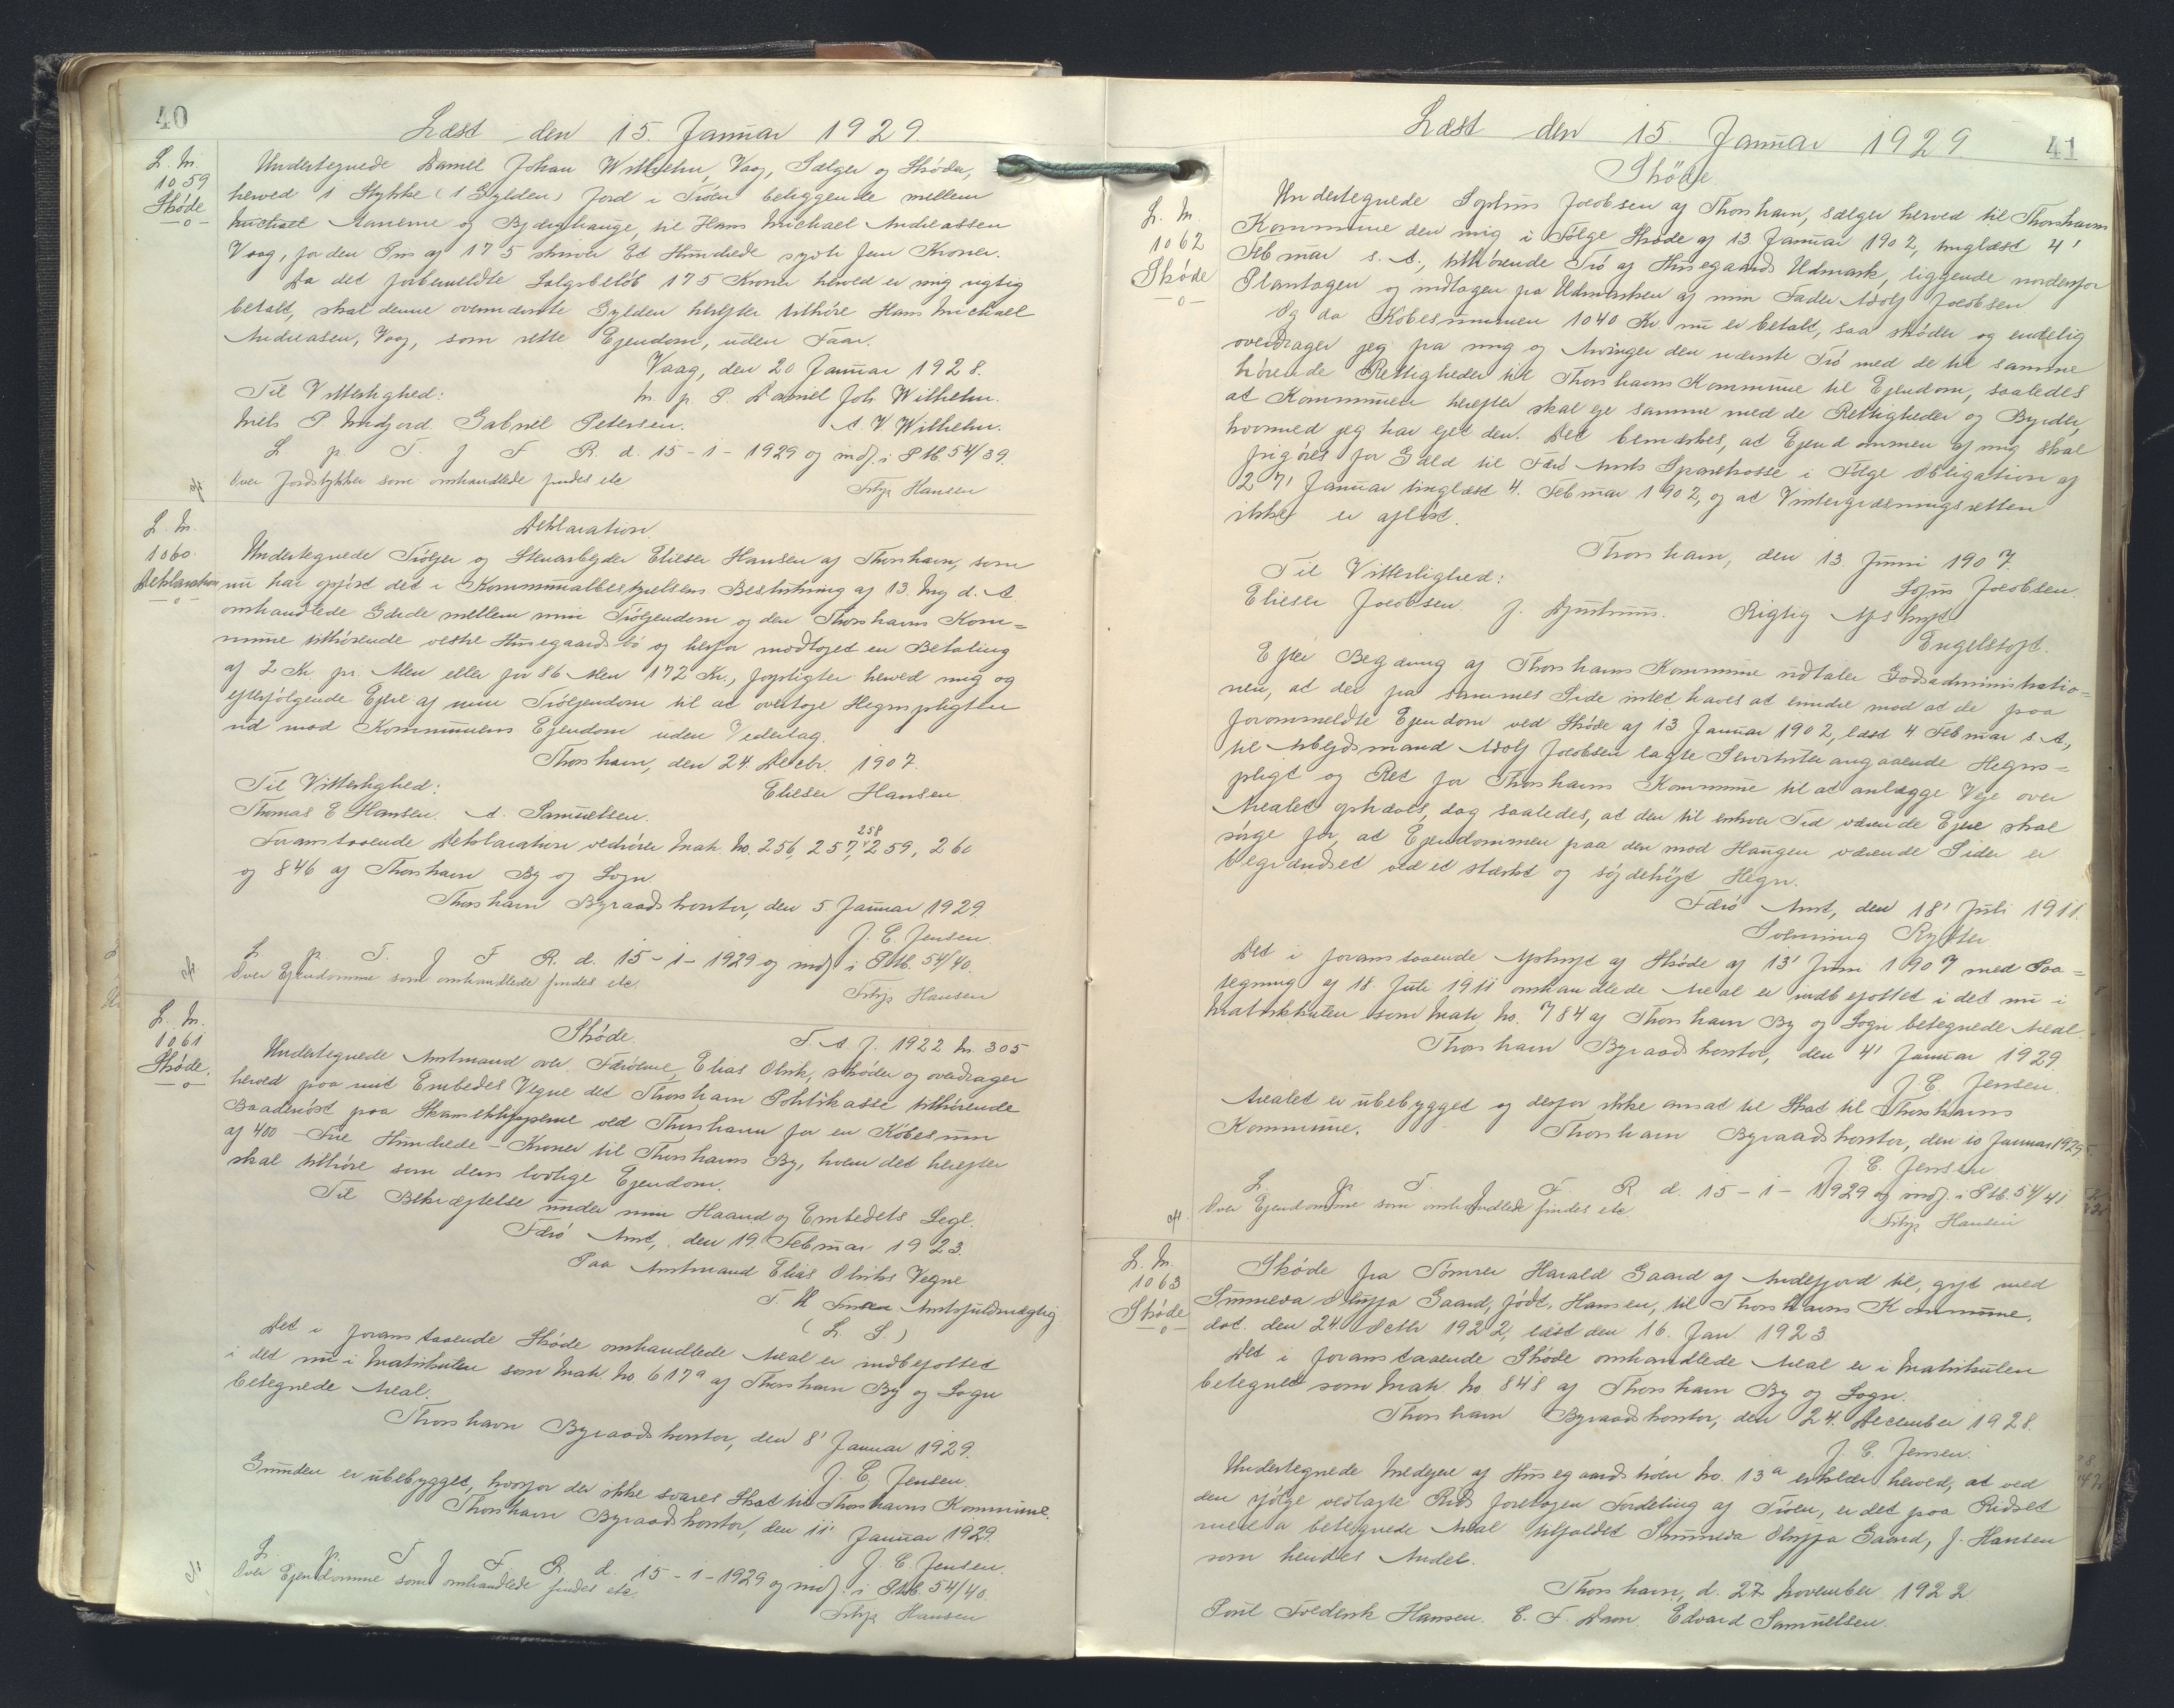 40
Læst den 15. Januar 1929.
L. Nr.
1059
Skøde
Undertegnede Daniel Johan Wilhelm, Vaag, Sælger og Skøder,
herved 1 Stykke (1 Gylden) Jord i Trøen beliggende mellem
Michael Aanerne og Bjærghauge, til Hans Michael Andreassen
Vaag, for den Pris af 175 skriver Et Hundrede syvti fem Kroner.
Da det forbemeldte Salgsbeløb 175 Kroner herved er mig rigtig
betalt, skal denne ovennævnte Gylden herefter tilhøre Hans Michael
Andreasen, Vaag, som rette Ejendom, uden Faar.
Vaag, den 20 Januar 1928.
Til Vitterlighed:
m. p. P. Daniel Joh. Wilhelm.
Niels P. Midfjord Gabriel Petersen.
A V Wilhelm.
L p. T. f F R. d. 15-1-1929 og indf. i Ptb. 54/39.
Over Jordstykker som omhandlede findes etc
Filip Hansen
L. Nr.
1060.
Deklaration
Deklaration.
Undertegnede Trøejer og Stenarbejder Elieser Hansen af Thorshavn, som
nu har opført det i Kommunalbestyrelsens Beslutning af 13. Maj d. A.
omhandlede Gærde mellem min Trøejendom og den Thorshavns Kom=
mune tilhørende vestre Husegaardsbø og herfor modtaget en Betaling
af 2 Kr. pr. Alen eller for 86 Alen 172 Kr., forpligter herved mig og
efterfølgende Ejere af min Trøejendom til at overtage Hegnspligten
ud mod Kommunens Ejendom uden Vederlag.
Thorshavn, den 24. Decbr. 1907.
Til Vitterlighed:
Elieser Hansen
Thomas E Hansen. A. Samuelsen.
Foranstaaende Deklaration vedrører Matr. No. 256, 257, 258, 259, 260
og 846 af Thorshavn By og Sogn.
Thorshavn Byraadskontor, den 5. Januar 1929.
J. C. Jensen.
L p. T. f F R. d. 15-1-1929 og indf i Ptb. 54/40.
Over Ejendomme som omhandlede findes etc.
Filip Hansen
L. Nr.
1061
Skøde.
Skøde.
T. A. J. 1922 Nr. 305
Undertegnede Amtmand over Færøerne, Elias Olrik, skøder og overdrager
herved paa mit Embedes Vegne det Thorshavn Politikasse tilhørende
Baadenøst paa Skanseklipperne ved Thorshavn for en Købesum
af 400 - Fire Hundrede - Kroner til Thorshavns By, hvem det herefter
skal tilhøre som dens lovlige Ejendom.
Til Bekræftelse under min Haand og Embedets Segl.
Færø Amt, den 19. Februar 1923.
Paa Amtmand Elias Olriks Vegne
Amtsfuldmægtig
(L. S.)
Det i foranstaaende Skøde omhandlede Areal er indbefattet
i det nu i Matrikulen som Matr. No. 617a af Thorshavn By og Sogn
betegnede Areal.
Thorshavn Byraadskontor, den 8' Januar 1929.
J. C. Jensen.
Grunden er ubebygget, hvorfor der ikke svares Skat til Thorshavns Kommune.
Thorshavn Byraadskontor, den 11' Januar 1929.
J. C. Jensen.
L p. T f F. R. d. 15-1-1929 og indf. i Ptb. 54/40.
Over Ejendomme som omhandlede findes etc.
Filip Hansen
41
Læst den 15. Januar 1929.
L. Nr.
1062
Skøde
Skøde.
Undertegnede Sophus Jacobsen af Thorshavn, sælger herved til Thorshavns
Kommune den mig i Følge Skøde af 13. Januar 1902, tinglæst 4'
Februar s. A., tilhørende Trø af Husegaards Udmark, liggende nordenfor
Plantagen og indtagen fra Udmarken af min Fader Adolf Jacobsen
Og da Købesummen 1040 Kr. nu er betalt, saa skøder og endelig
overdrager jeg fra mig og Arvinger den nævnte Trø med de til samme
hørende Rettigheder til Thorshavns Kommune til Ejendom, saaledes
at Kommunen herefter skal eje samme med de Rettigheder og Byrder,
hvormed jeg har ejet den. Det bemærkes, at Ejendommen af mig skal
frigøres for Gæld til Færø Amts Sparekasse i Følge Obligation af
27' Januar tinglæst 4. Februar 1902, og at Vintergræsningsretten
ikke er afløst.
Thorshavn, den 13. Juni 1907.
Til Vitterlighed:
Sofus Jacobsen.
Elieser Jacobsen. J. Djurhuus.
Rigtig Afskrift
Engelstoft.
Efter Begæring af Thorshavns Kommune udtaler Godsadministratio=
nen, at der fra sammes Side intet haves at erindre mod at de paa
forommeldte Ejendom ved Skøde af 13 Januar 1902, læst 4 Februar s. A.,
til Arbejdsmand Adolf Jacobsen lagte Servitutter angaaende Hegns=
pligt og Ret for Thorshavns Kommune til at anlægge Veje over
Arealet ophæves, dog saaledes, at den til enhver Tid værende Ejer skal
sørge for, at Ejendommen paa den mod Haugen værende Side er
begrændset ved et stærkt og søjdehøjt Hegn.
Færø Amt, den 18' Juli 1911.
Svenning Rytter
Det i foranstaaende Afskrift af Skøde af 13' Juni 1907 med Paa=
tegning af 18. Juli 1911 omhandlede Areal er indbefattet i det nu i
Matrikulen som Matr. No. 784 af Thorshavn By og Sogn betegnede Areal.
Thorshavn Byraadskontor, den 4' Januar 1929.
J. C. Jensen.
Arealet er ubebygget og derfor ikke ansat til Skat til Thorshavns
Kommune.
Thorshavn Byraadskontor, den 10 Januar 1929.
J. C. Jensen.
L. p. T. f F. R. d. 15-1-1929 og indf. i Ptb. 54/41
Over Ejendomme som omhandlede findes etc.
Filip Hansen
L. Nr.
1063
Skøde
Skøde fra Tømrer Harald Gaard af Andefjord til, gift med
Sunneva Oluffa Gaard, født Hansen, til Thorshavns Kommune,
dat. den 24. Octbr 1922, læst den 16. Jan. 1923.
Det i foranstaaende Skøde omhandlede Areal er i Matrikulen
betegnet som Matr. No. 848 af Thorshavn By og Sogn.
Thorshavn Byraadskontor, den 24. December 1928.
J. C. Jensen.
Undertegnede Medejere af Husegaardstrøen No. 13a erklærer herved, at ved
den ifølge vedlagte Rids foretagen Fordeling af Trøen, er det paa Ridset
med a betegnede Areal tilfaldet Sunneva Oluffa Gaard, f. Hansen
som hendes Andel.
Thorshavn, d. 27 November 1922
Poul Frederik Hansen. E. F. Dam. Edvard Samuelsen.